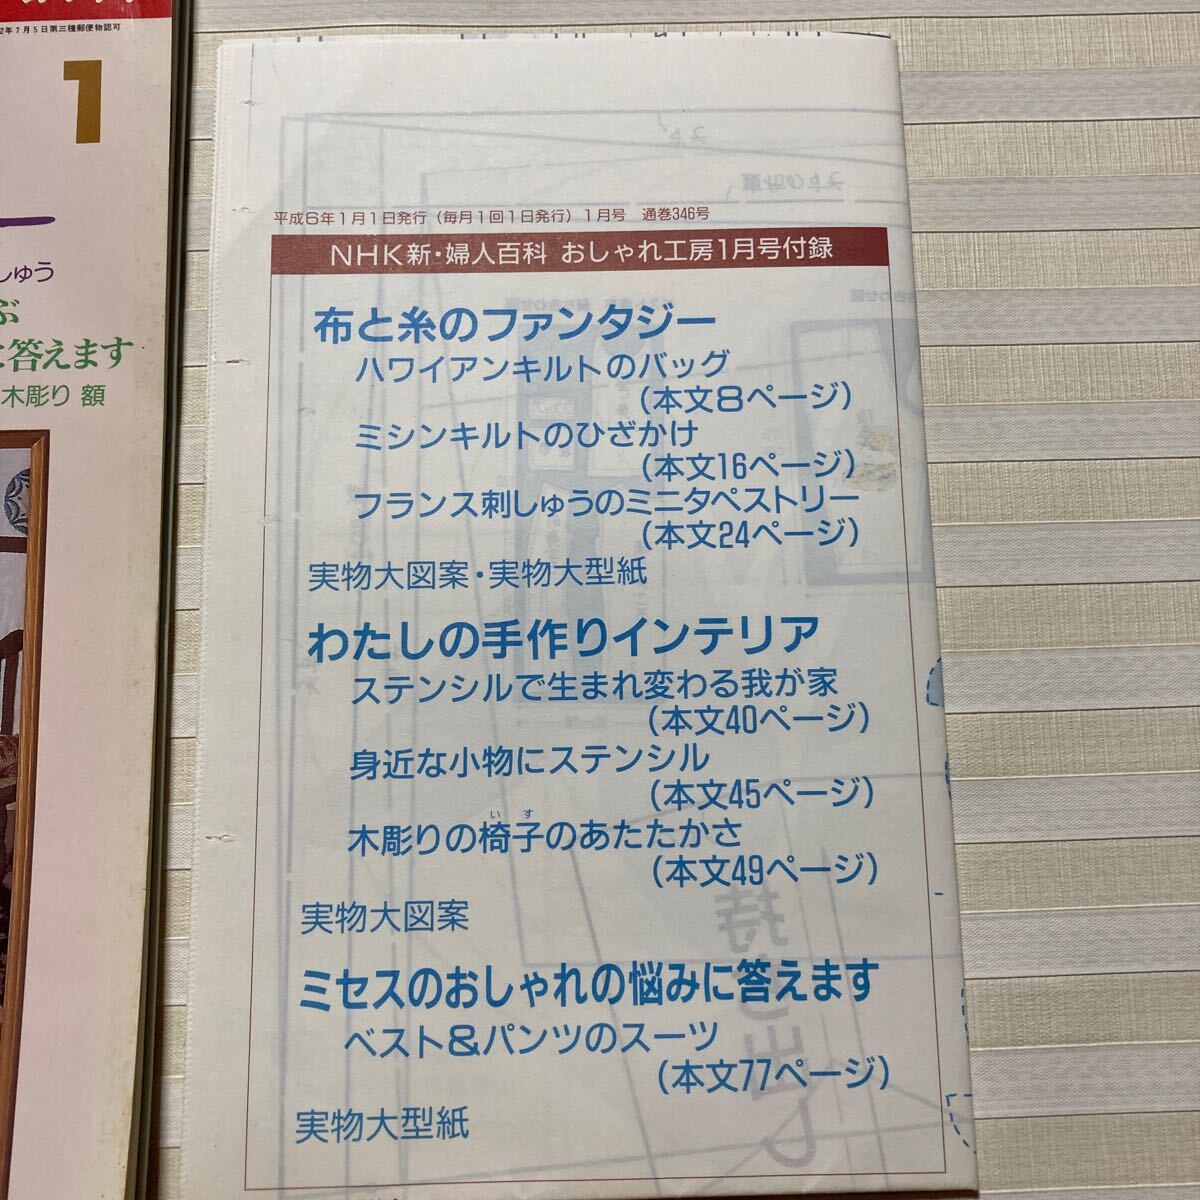 2年7月5日第三種郵便物認可
1
しゅう
ぶ
に答えます
木彫り 額
平成6年1月1日発行（毎月1回1日発行）1月号 通巻346号
NHK新・婦人百科 おしゃれ工房1月号付録
布と糸のファンタジー
ハワイアンキルトのバッグ
（本文8ページ）
ミシンキルトのひざかけ
（本文16ページ）
フランス刺しゅうのミニタペストリー
（本文24ページ）
実物大図案・実物大型紙
わたしの手作りインテリア
ステンシルで生まれ変わる我が家
（本文40ページ）
身近な小物にステンシル
（本文45ページ）
いす
木彫りの椅子のあたたかさ
（本文49ページ）
実物大図案
ミセスのおしゃれの悩みに答えます
ベスト＆パンツのスーツ
（本文77ページ）
実物大型紙